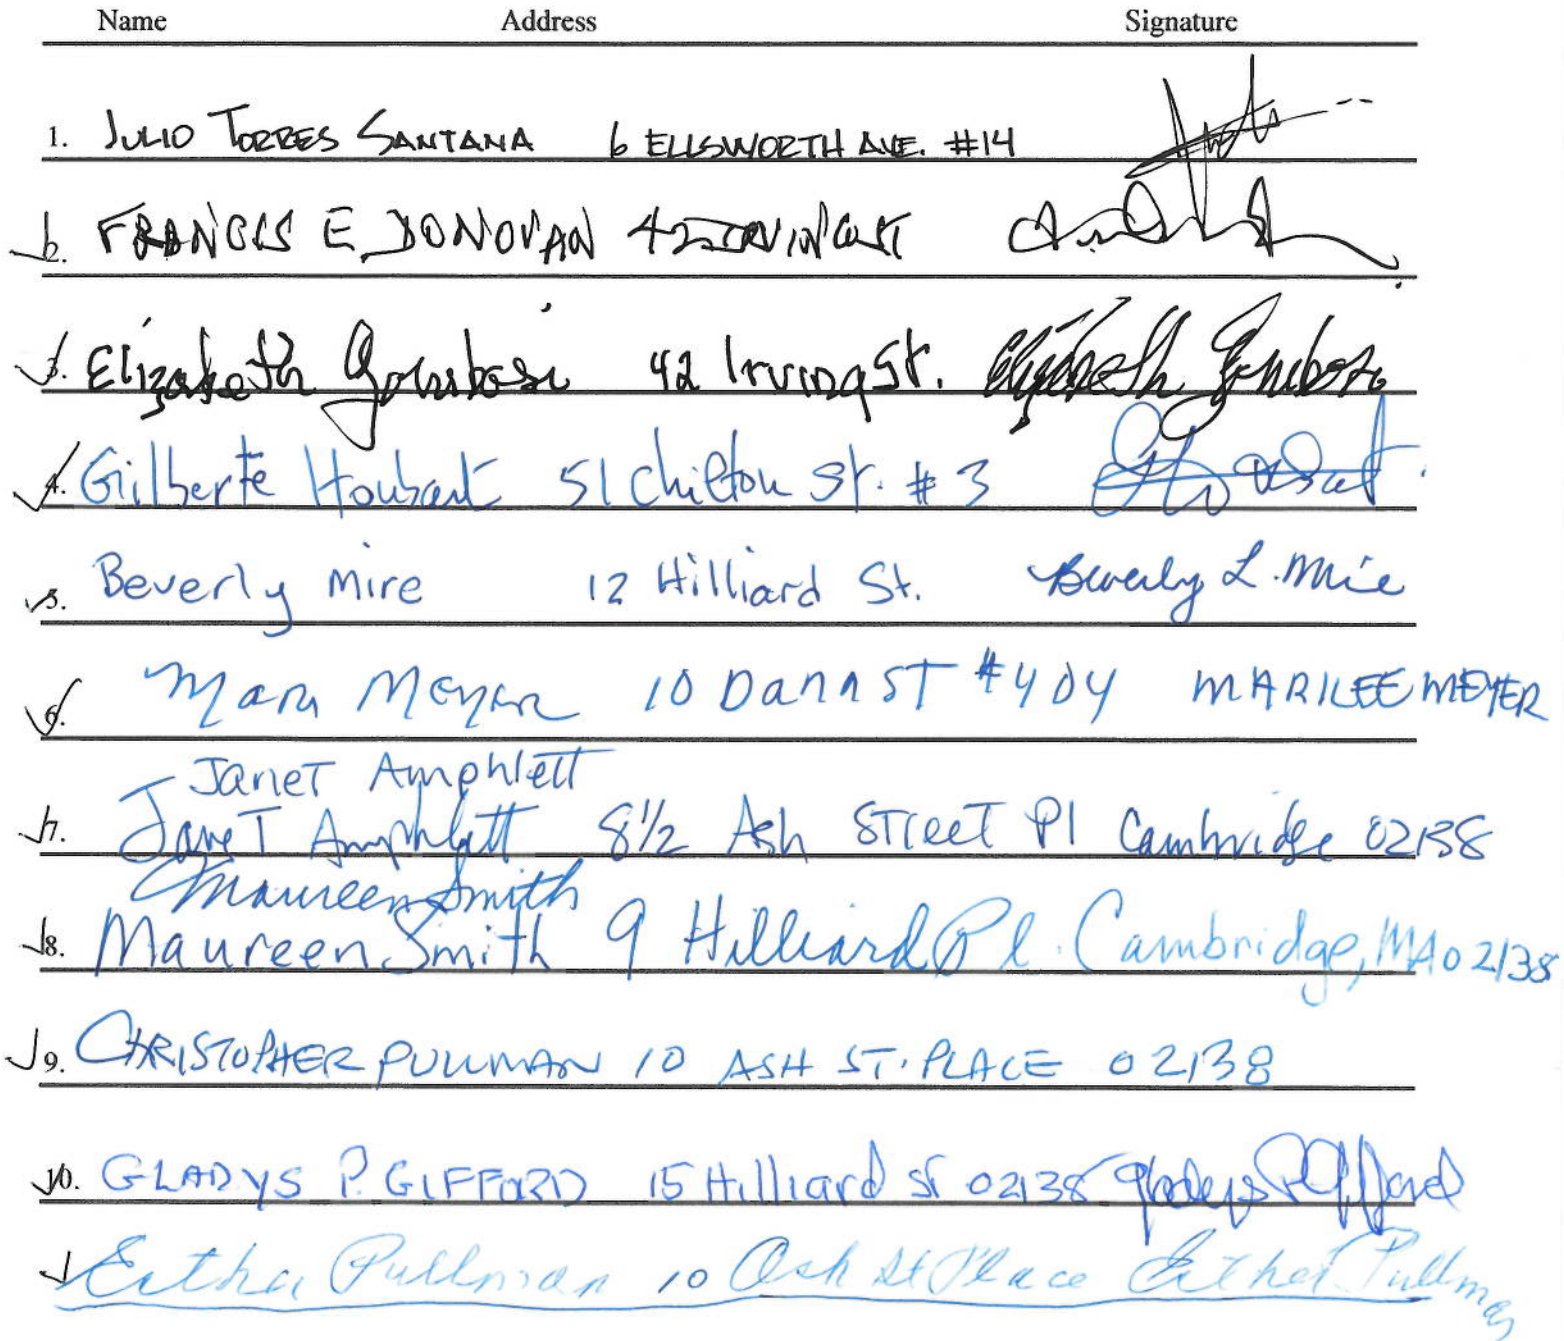 Name Address Signature
1. JULIO TORRES SANTANA 6 ELLSWORTH AVE. #14
2. FRANCIS E DONOVAN 42 IRVING ST
3. Elizabeth Gombosi 42 Irving St. Elizabeth Gombosi
4. Gilberte Houbart 51 Chilton St. # 3
5. Beverly Mire 12 Hilliard St. Beverly L. Mire
6. Meyer 10 Dana ST #404 MARILEE MEYER
Janet Amphlett
7. Janet Amphlett 8 1/2 Ash Street Pl Cambridge 02138
Maureen Smith
8. Maureen Smith 9 Hilliard Pl. Cambridge, MA 02138
9. CHRISTOPHER PULLMAN 10 ASH ST. PLACE 02138
10. GLADYS P. GIFFORD 15 Hilliard St 02138 Gladys P Gifford
Esther Pullman 10 Ash St Place Esther Pullman